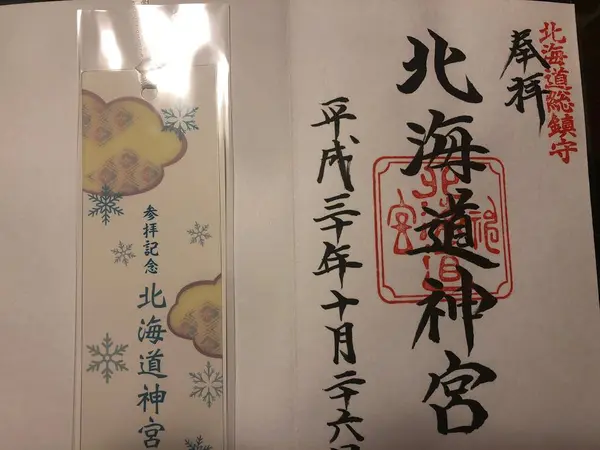 北海道総鎮守
奉拝
北海道神宮
平成三十年十月二十六日
参拝記念
北海道神宮